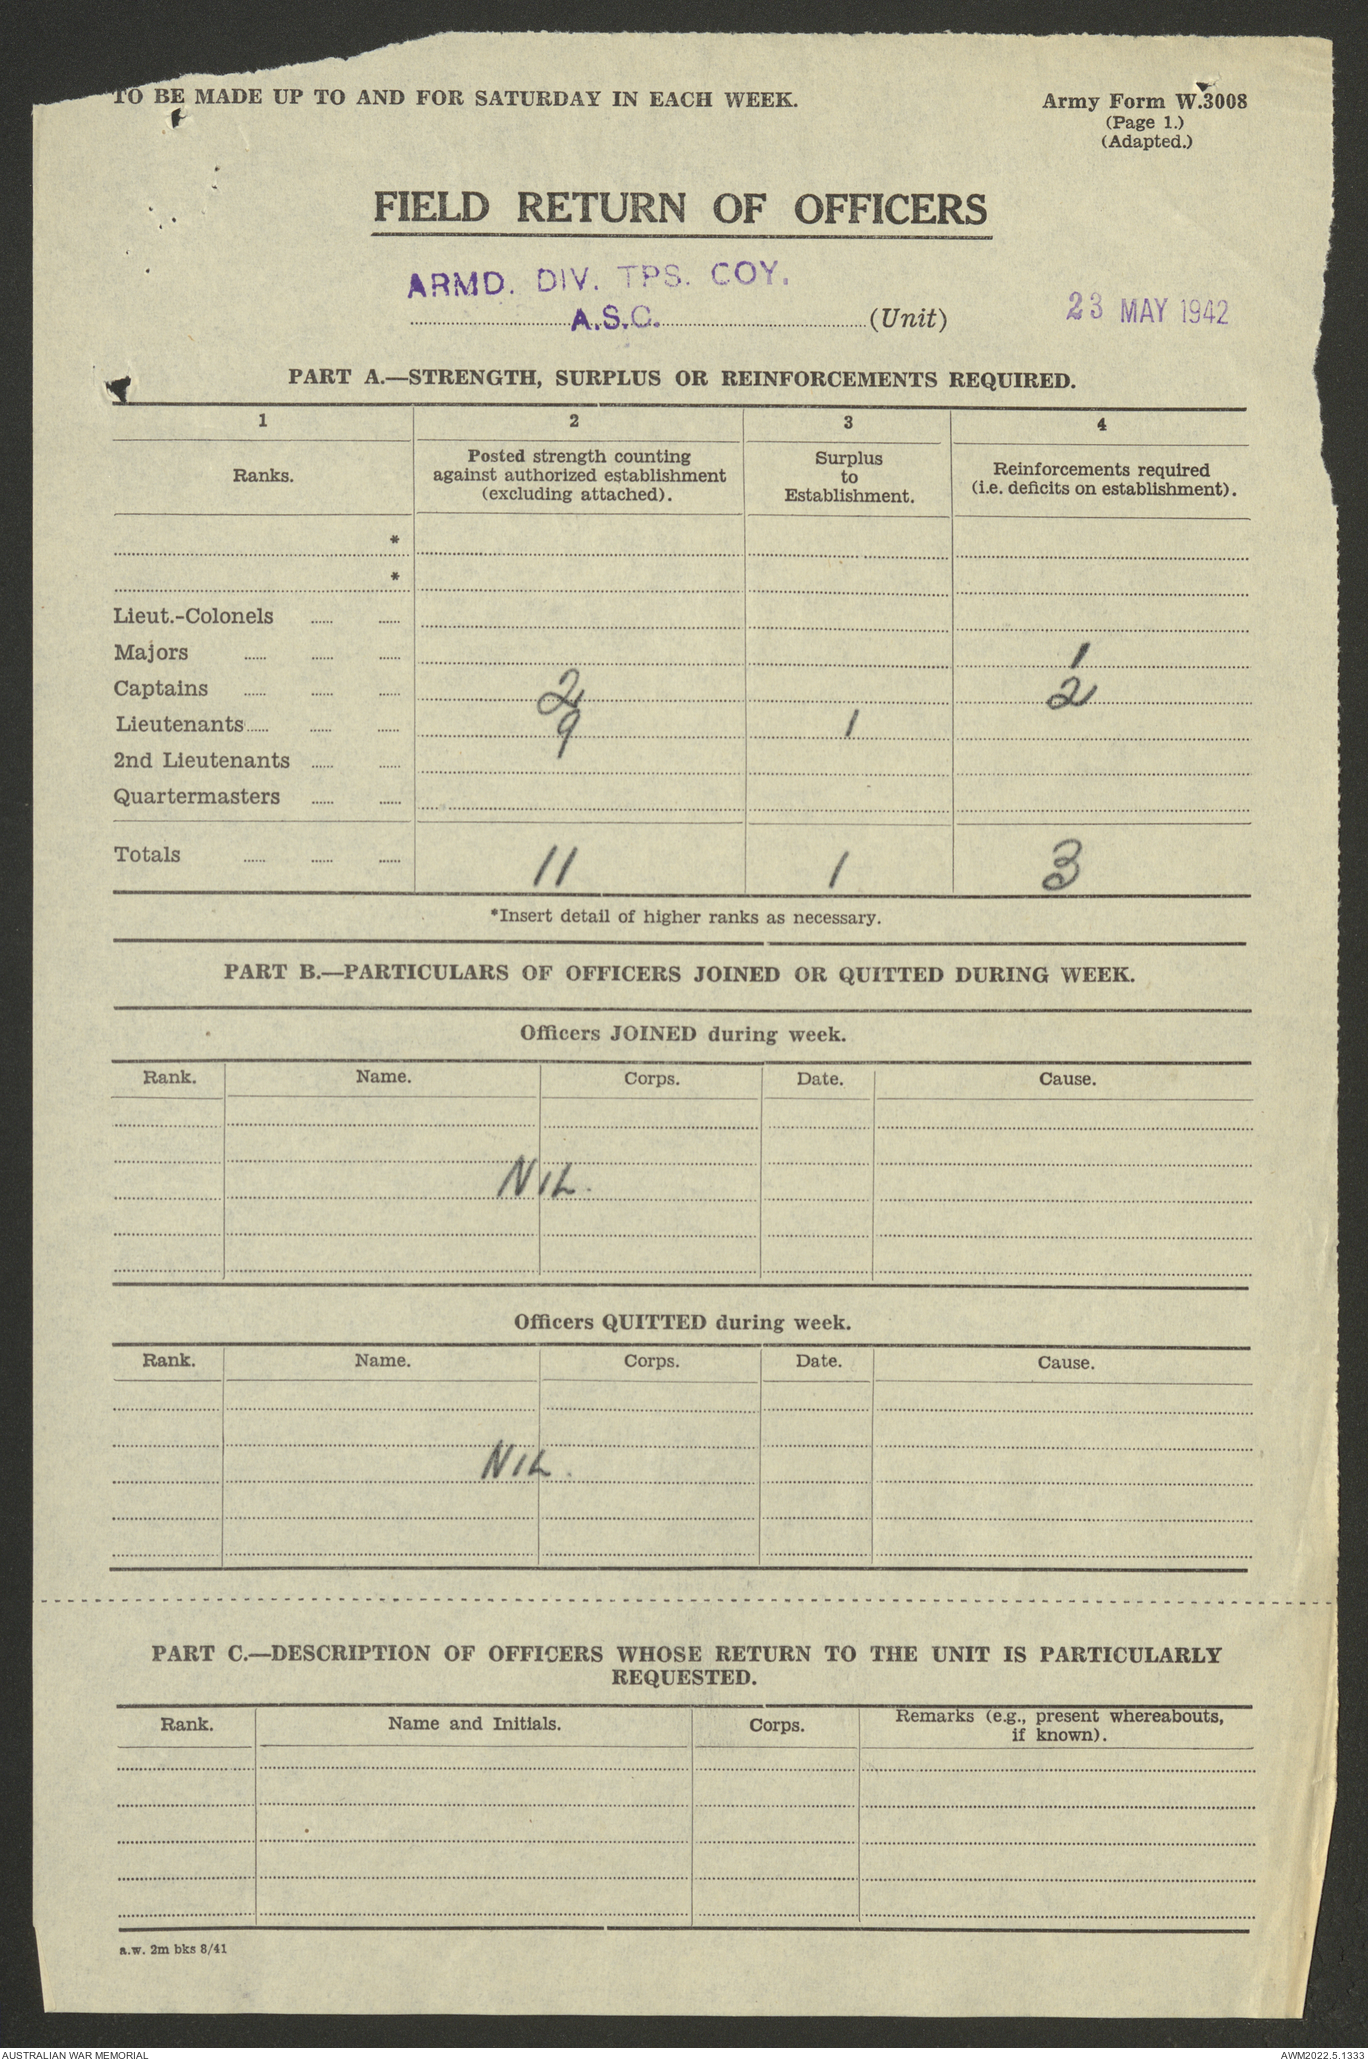 TO BE MADE UP TO AND FOR SATURDAY IN EACH WEEK.
Army Form W.3008
(Page 1.)
(Adapted.)
FIELD RETURN OF OFFICERS
ARMD. DIV. TPS. COY.
A.S.C. (Unit)
23 MAY 1942
PART A.—STRENGTH, SURPLUS OR REINFORCEMENTS REQUIRED.
1 2 3 4
Ranks.
Posted strength counting against authorized establishment (excluding attached).
Surplus to Establishment.
Reinforcements required (i.e. deficits on establishment).
*
*
Lieut.-Colonels ...... ......
Majors ...... ...... ...... 1
Captains ...... ...... ...... 2 2
Lieutenants ...... ...... ...... 9 1
2nd Lieutenants ...... ......
Quartermasters ...... ......
Totals ...... ...... ...... 11 1 3
*Insert detail of higher ranks as necessary.
PART B.—PARTICULARS OF OFFICERS JOINED OR QUITTED DURING WEEK.
Officers JOINED during week.
Rank. Name. Corps. Date. Cause.
NIL.
Officers QUITTED during week.
Rank. Name. Corps. Date. Cause.
NIL.
PART C.—DESCRIPTION OF OFFICERS WHOSE RETURN TO THE UNIT IS PARTICULARLY
REQUESTED.
Rank. Name and Initials. Corps. Remarks (e.g., present whereabouts, if known).
a.w. 2m bks 8/41
AUSTRALIAN WAR MEMORIAL
AWM2022.5.1333